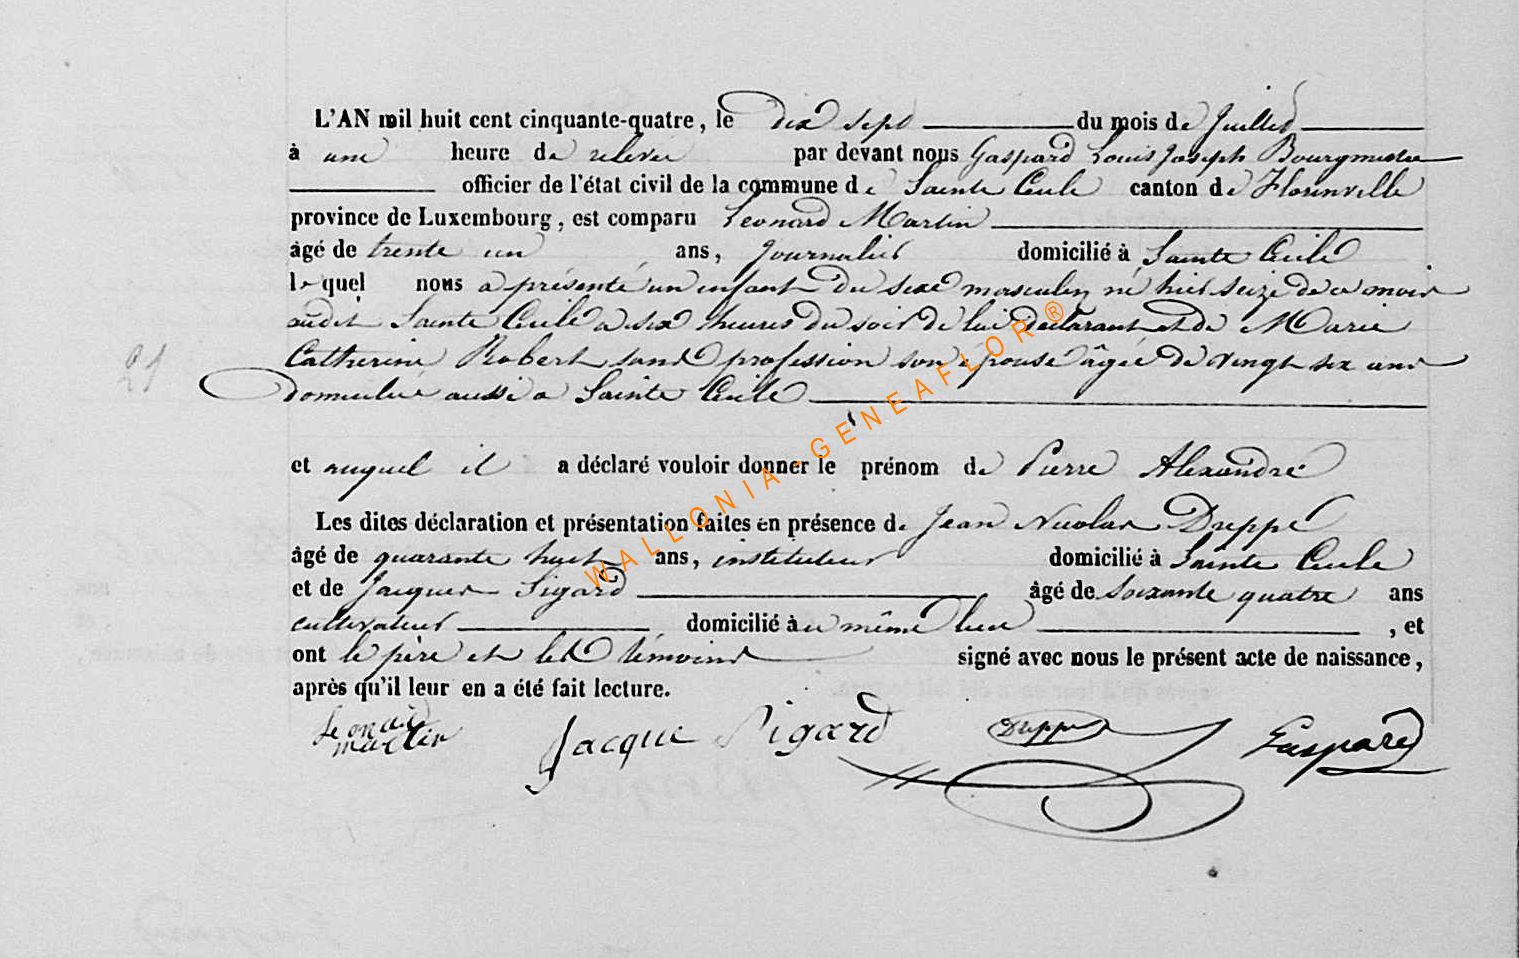 L'AN mil huit cent cinquante-quatre, le dix sept du mois de Juillet
à une heure de relevée par devant nous Gaspard Louis Joseph Bourgmestre
officier de l'état civil de la commune de Sainte Cecile canton de Florenville
province de Luxembourg, est comparu Leonard Martin
âgé de trente un ans, Journalier domicilié à Sainte Cecile
lequel nous a présenté un enfant du sexe masculin né hier seize de ce mois
audit Sainte Cecile a six heures du soir de lui déclarant et de Marie
Catherine Robert sans profession son épouse âgée de vingt six ans
21
domiciliée aussi a Sainte Cecile
et auquel il a déclaré vouloir donner le prénom de Pierre Alexandre
Les dites déclaration et présentation faites en présence de Jean Nicolas Dreppe
âgé de quarante huit ans, instituteur domicilié à Sainte Cecile
et de Jacques Sigard âgé de Soixante quatre ans
cultivateur domicilié à ce même lieu , et
ont le père et les témoins signé avec nous le présent acte de naissance,
après qu'il leur en a été fait lecture.
Leonard
martin
Jacque Sigard
Dreppe
Gaspard
WALLONIA-GENEAFLOR®